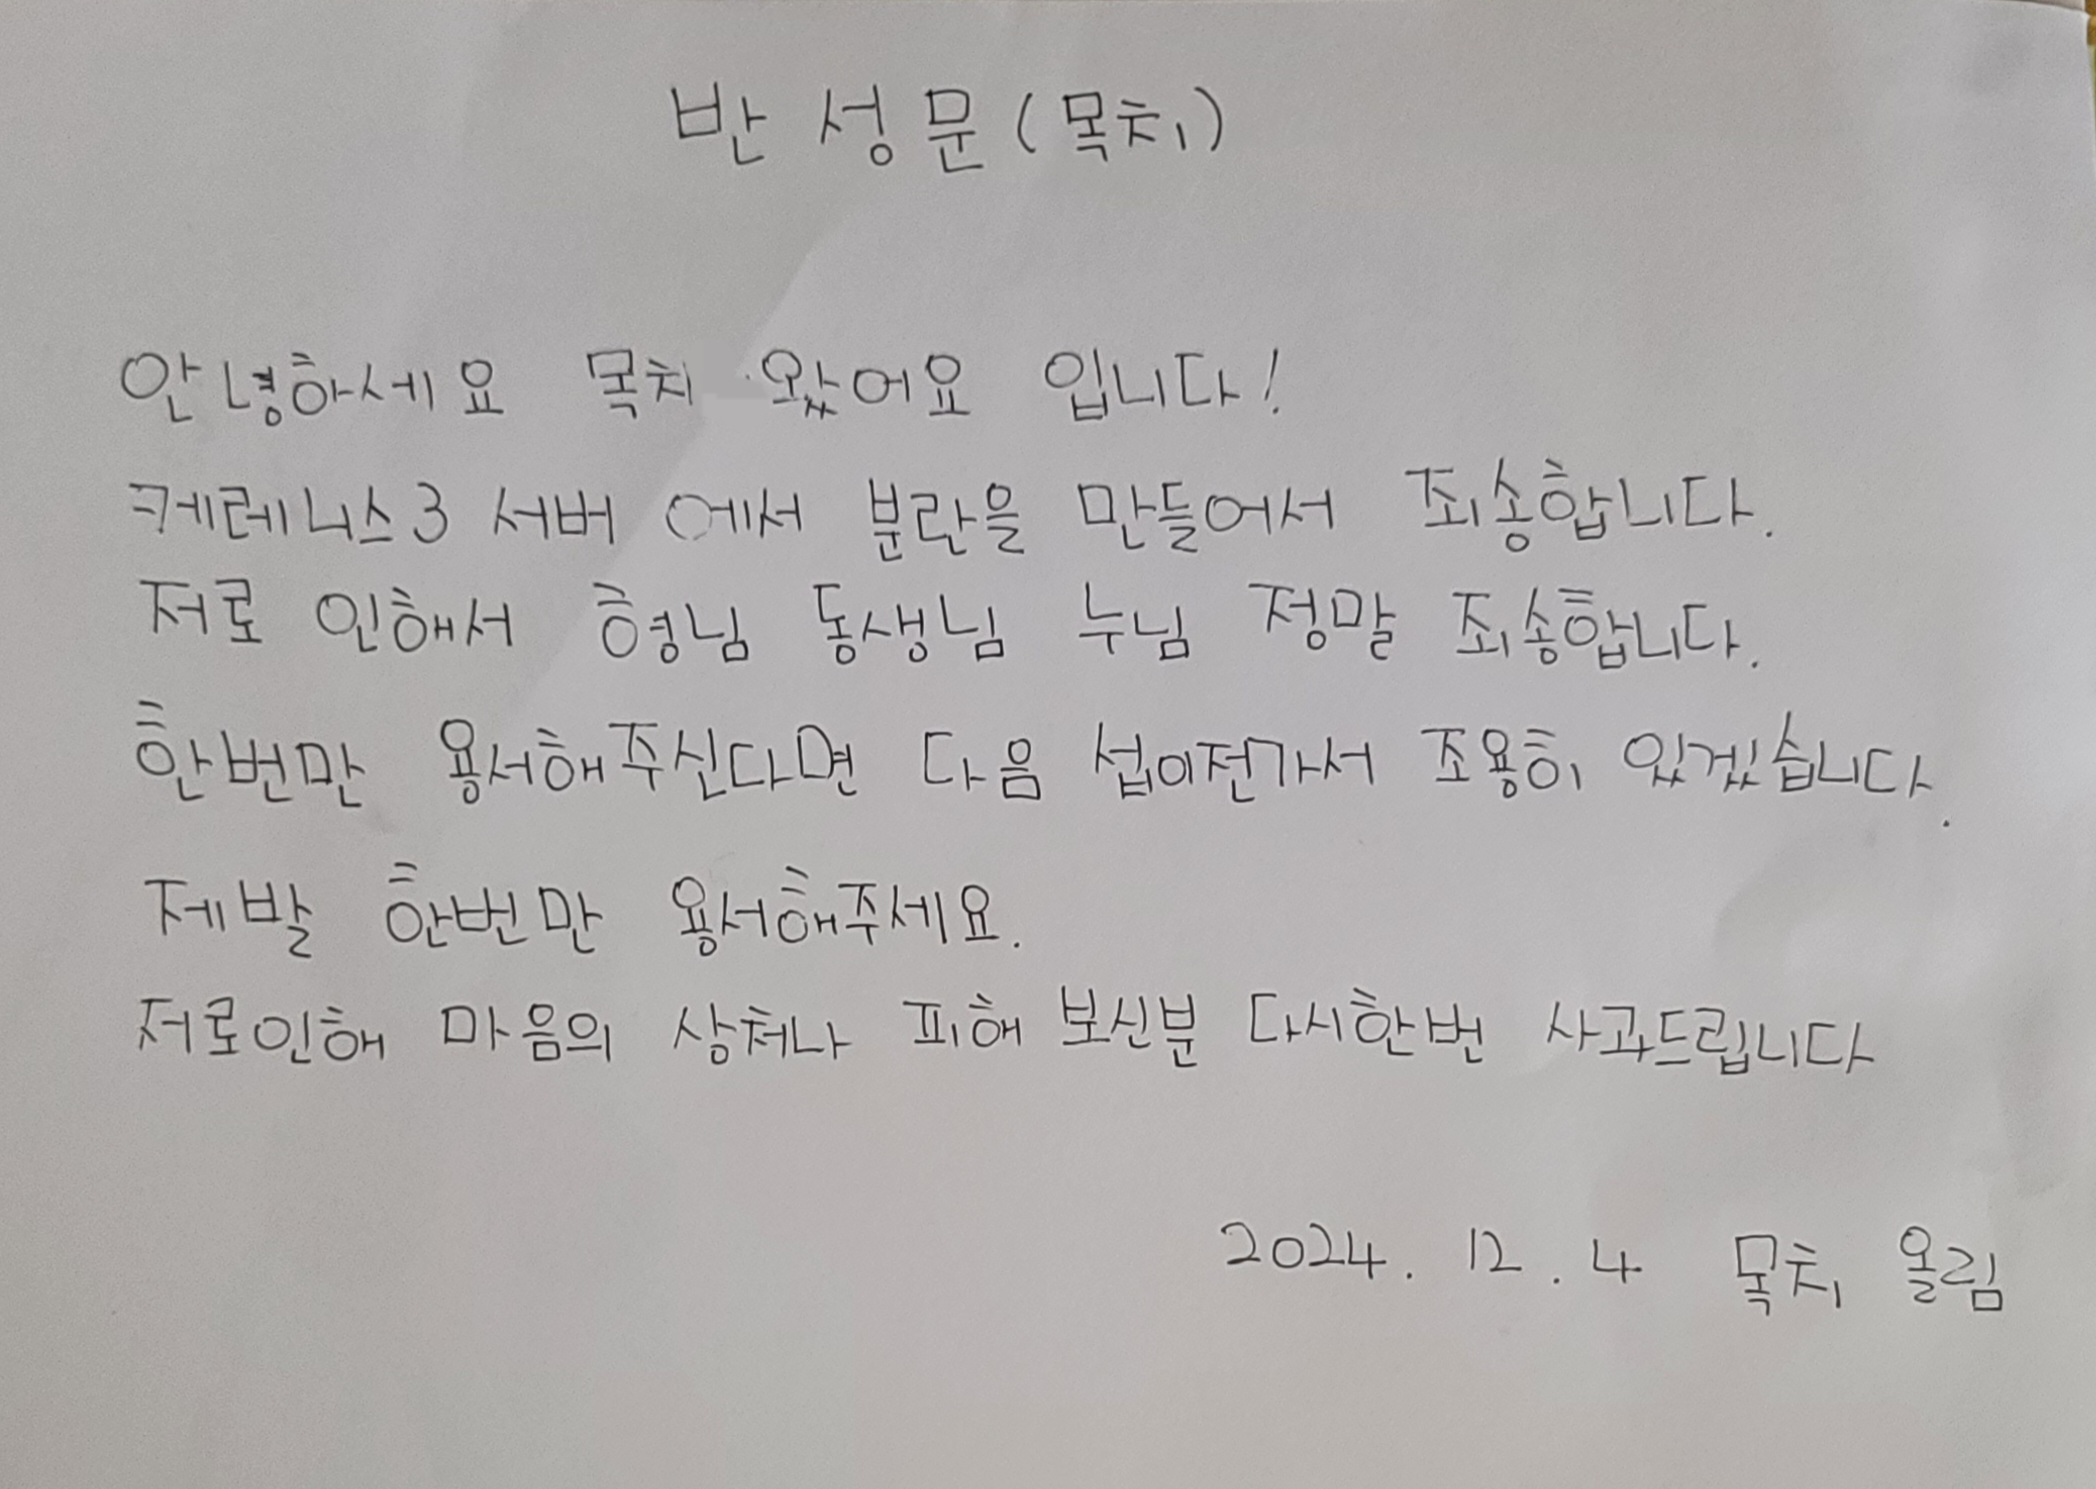 반 성 문 (목치)
안녕하세요 목치 왔어요 입니다!
케레니스3 서버 에서 분란을 만들어서 죄송합니다.
저로 인해서 형님 동생님 누님 정말 죄송합니다.
한번만 용서해주신다면 다음 섭이전가서 조용히 있겠습니다.
제발 한번만 용서해주세요.
저로인해 마음의 상처나 피해 보신분 다시한번 사과드립니다
2024. 12. 4 목치 올림